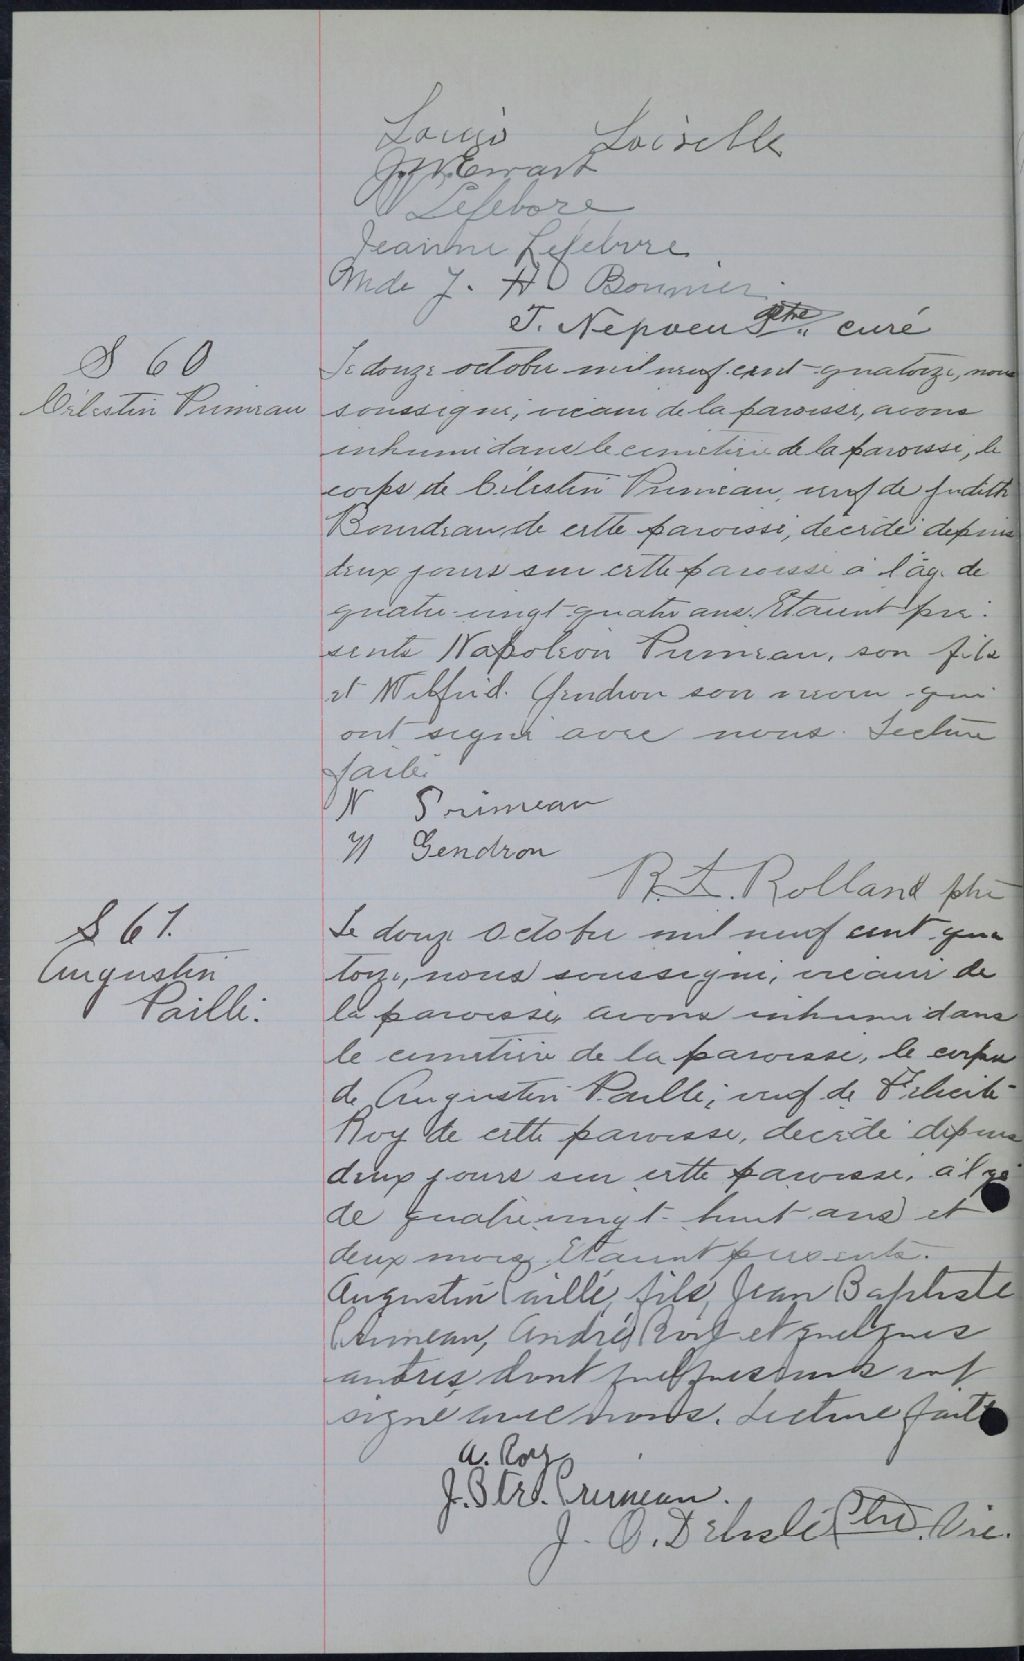 Louis Loiselle
J. W. Ewart
Lefebvre
Jeanne Lefebvre
Mde J. H. Bonnier
T. Nepveu Ptre curé
S 60
Célestin Primeau
Le douze octobre mil neuf cent quatorze, nous
soussigné, vicaire de la paroisse, avons
inhumé dans le cimetière de la paroisse, le
corps de Célestin Primeau, veuf de Judith
Bourdeau, de cette paroisse, décédé depuis
deux jours sur cette paroisse à l'âge de
quatre-vingt-quatre ans. Etaient pré-
sents Napoléon Primeau, son fils
et Wilfrid Gendron son neveu qui
ont signé avec nous. Lecture
faite.
N Primeau
W Gendron
R. L. Rolland ptre
S 61.
Augustin
Paillé.
Le douze octobre mil neuf cent qua
torze, nous soussigné, vicaire de
la paroisse, avons inhumé dans
le cimetière de la paroisse, le corps
de Augustin Paillé, veuf de Félicité
Roy de cette paroisse, décédé depuis
deux jours sur cette paroisse, à l'âge
de quatre vingt-huit ans et
deux mois. Etaient présents.
Augustin Paillé, fils, Jean Baptiste
Primeau, André Roy et quelques
autres, dont quelques uns ont
signé avec nous. Lecture faite
A. Roy
J. Bte. Primeau.
J. O. Delisle Ptre. Vic.